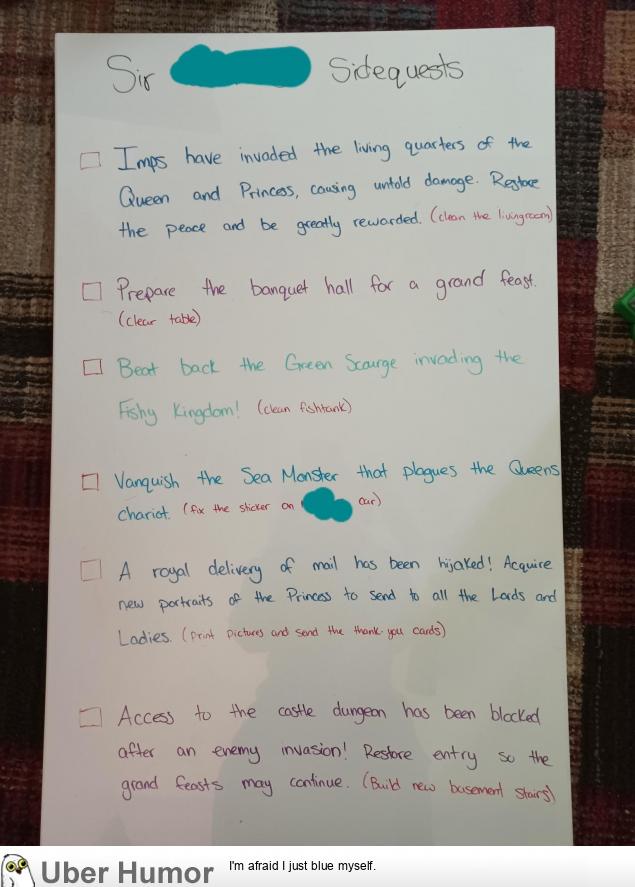 Sir Sidequests
Imps have invaded the living quarters of the
Queen and Princess, causing untold damage. Restore
the peace and be greatly rewarded. (clean the livingroom)
Prepare the banquet hall for a grand feast.
(clear table)
Beat back the Green Scourge invading the
Fishy Kingdom! (clean fishtank)
Vanquish the Sea Monster that plagues the Queens
chariot. (fix the sticker on car)
A royal delivery of mail has been hijaked! Acquire
new portraits of the Princess to send to all the Lords and
Ladies. (Print pictures and send the thank-you cards)
Access to the castle dungeon has been blocked
after an enemy invasion! Restore entry so the
grand feasts may continue. (Build new basement stairs)
Uber Humor I'm afraid I just blue myself.